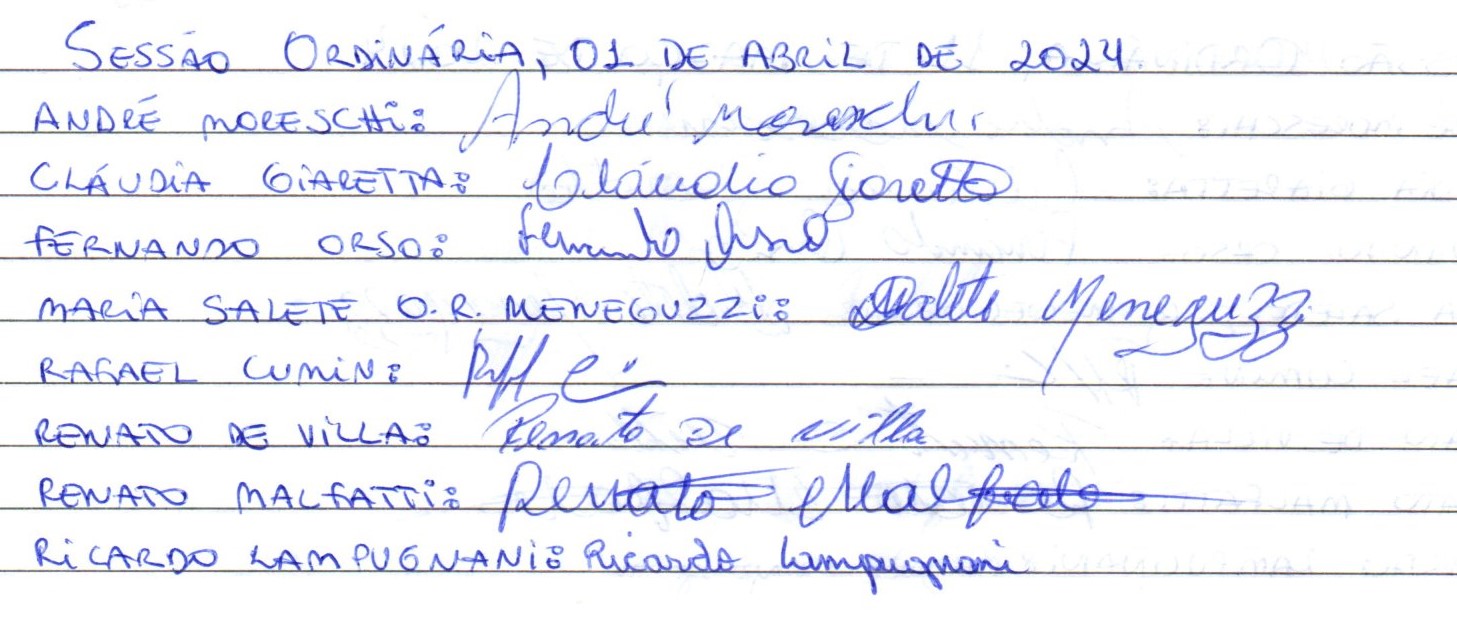 SESSÃO ORDINÁRIA, 01 DE ABRIL DE 2024.
ANDRÉ MORESCHI: André Moreschi
CLÁUDIA GIARETTA: Cláudia Giaretta
FERNANDO ORSO: Fernando Orso
MARIA SALETE O.R. MENEGUZZI: Salete Meneguzzi
RAFAEL CUMIN:
RENATO DE VILLA: Renato De Villa
RENATO MALFATTI: Renato Malfatti
RICARDO LAMPUGNANI: Ricardo Lampugnani